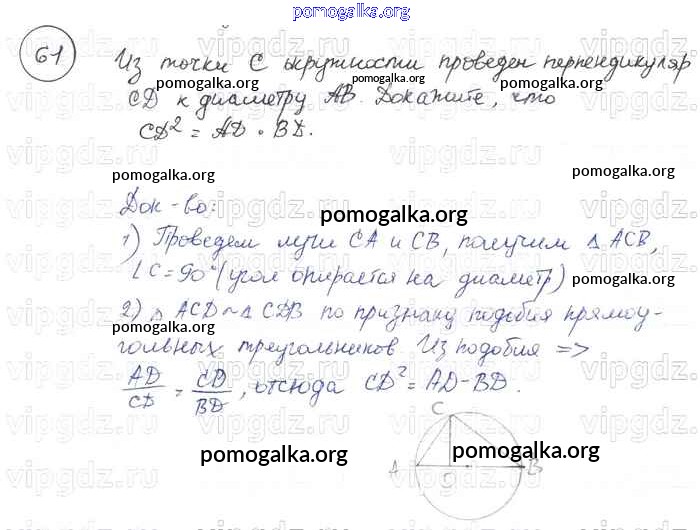 pomogalka.org
61
Из точки С окружности проведен перпендикуляр
CD к диаметру AB. Докажите, что
CD² = AD · BD.
pomogalka.org
pomogalka.org
pomogalka.org
pomogalka.org
pomogalka.org
Док-во:
pomogalka.org
1) Проведем лучи CA и CB, получим △ ACB,
∠C = 90° (угол опирается на диаметр)
pomogalka.org
2) △ ACD ~ △ CDB по признаку подобия прямоу-
pomogalka.org
гольных треугольников. Из подобия =>
AD/CD = CD/BD, отсюда CD² = AD - BD.
pomogalka.org
C
A B
pomogalka.org
pomogalka.org
vipgdz.ru